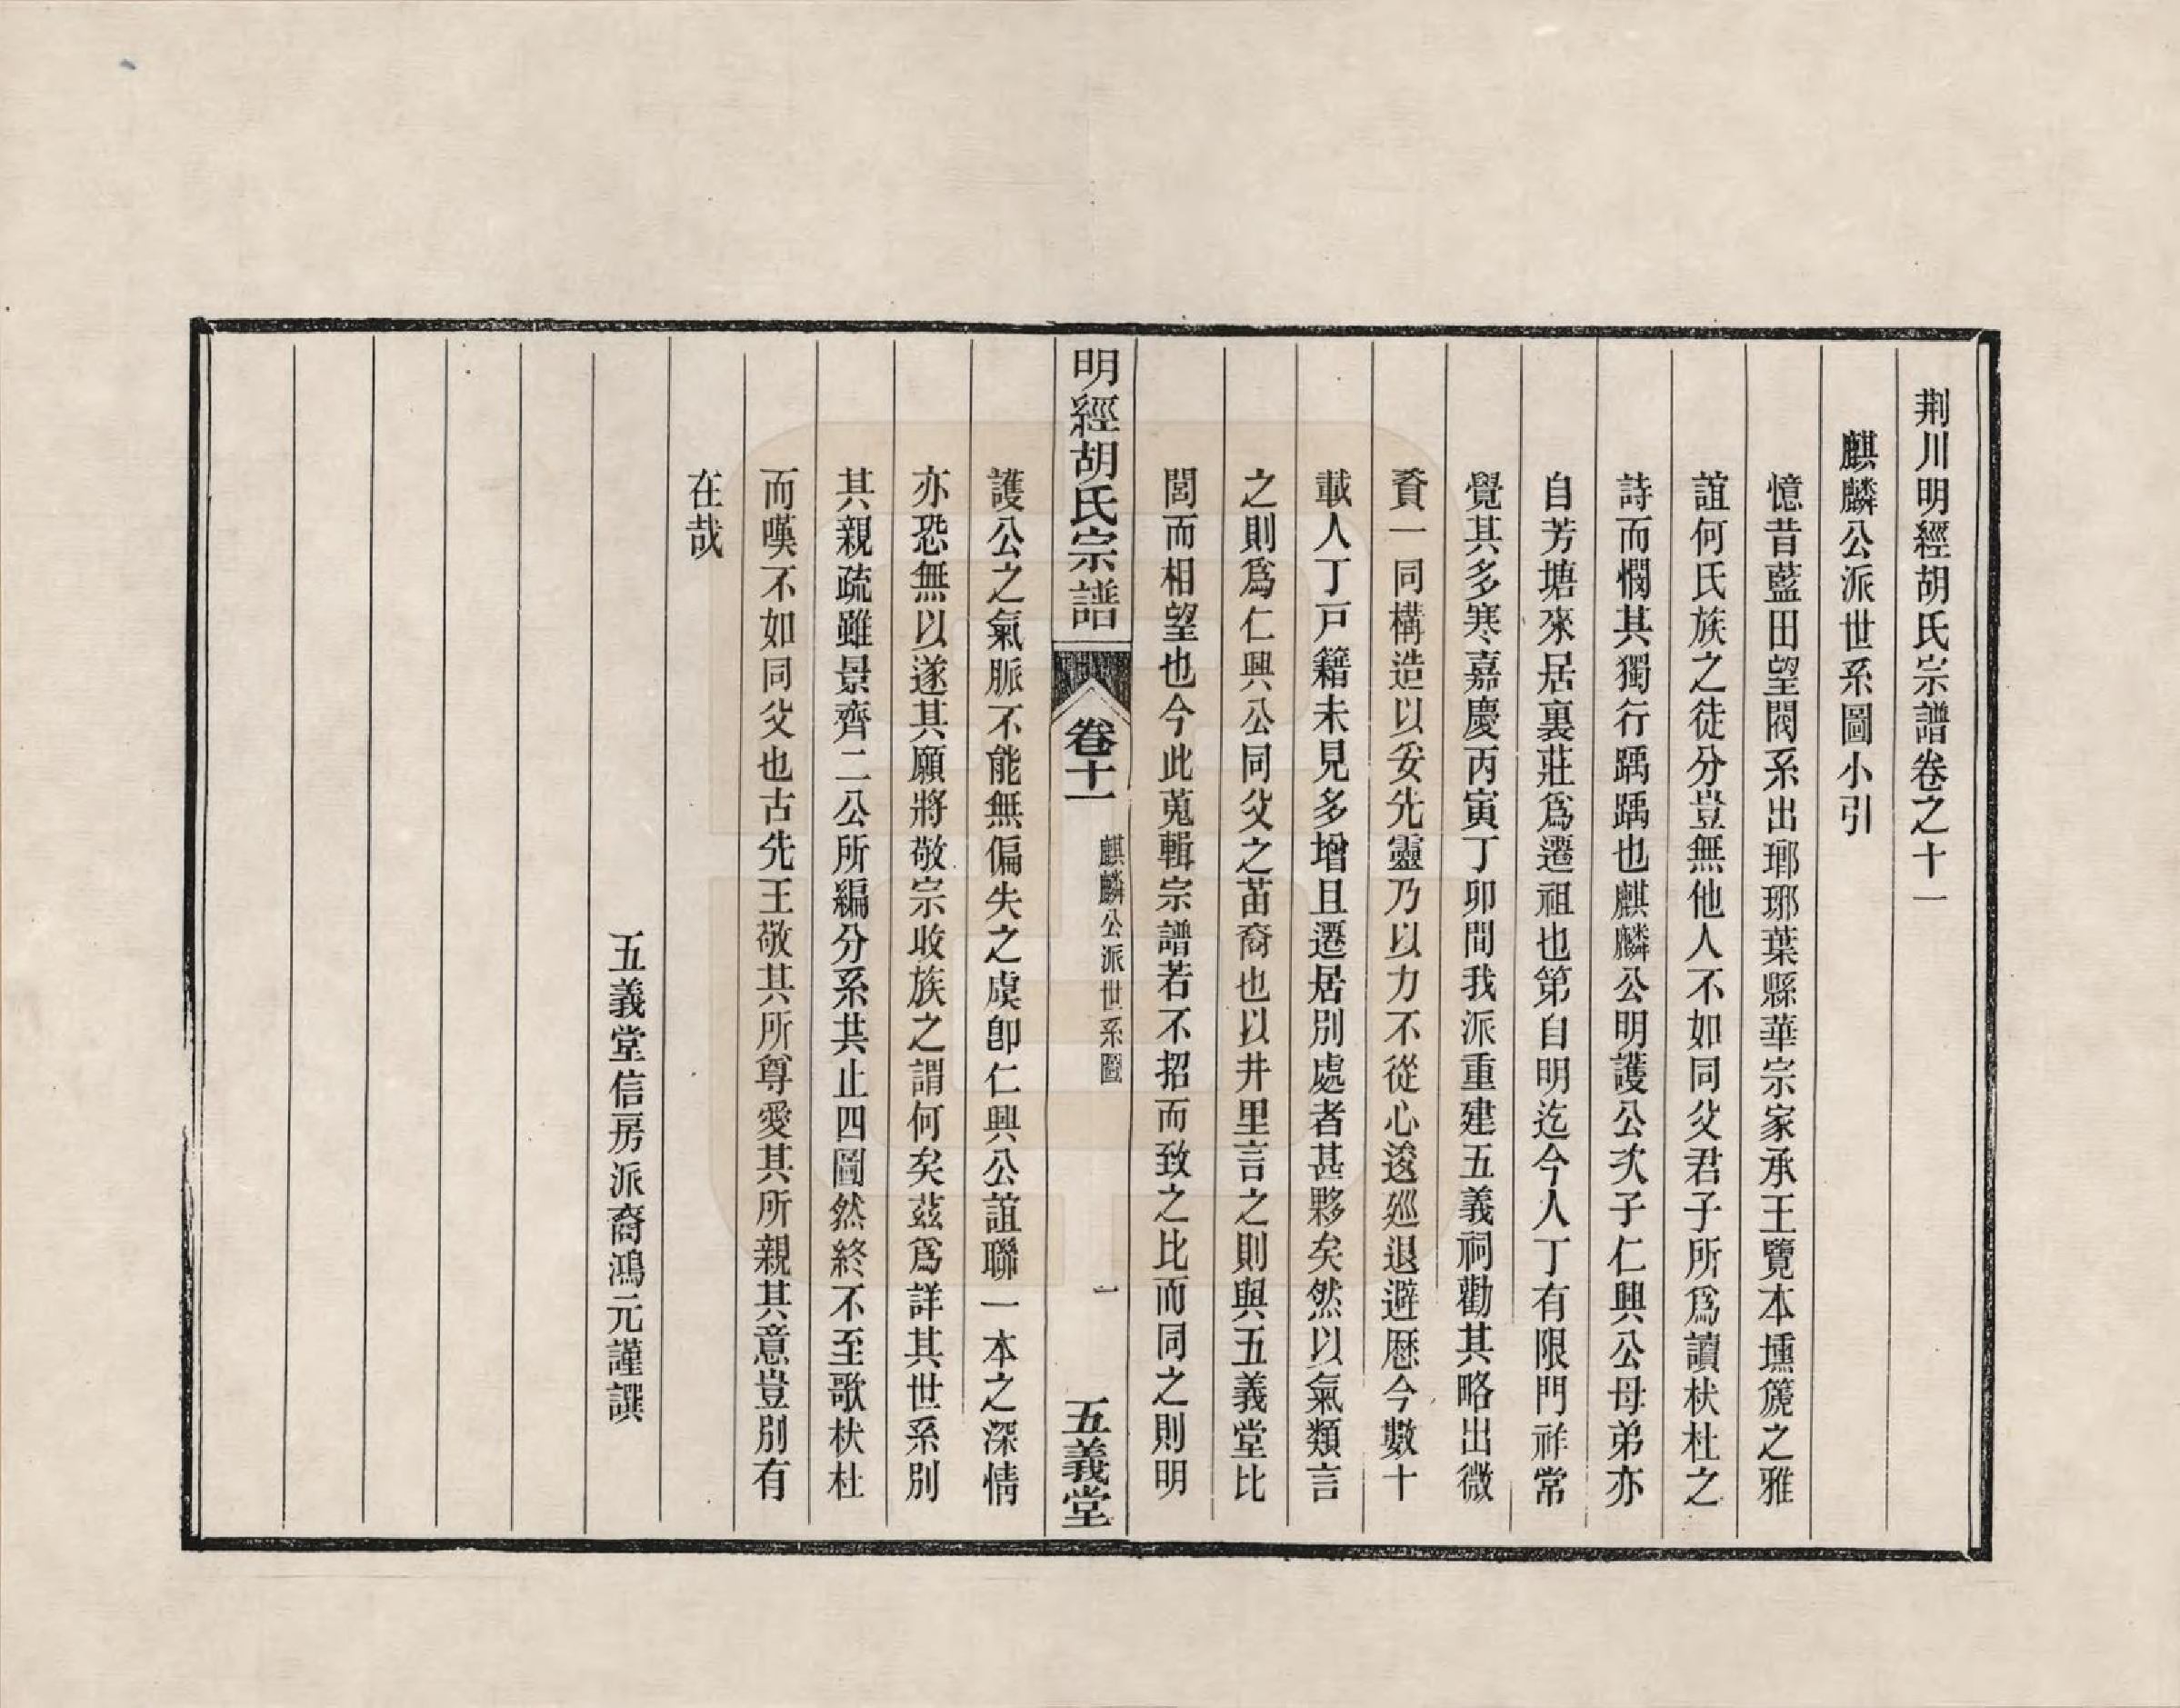 荆川明經胡氏宗譜卷之十一
麒麟公派世系圖小引
憶昔藍田望閥系出瑯琊葉縣華宗家承王覽本壎篪之雅
誼何氏族之徒分豈無他人不如同父君子所爲讀杕杜之
詩而憫其獨行踽踽也麒麟公明護公次子仁興公母弟亦
自芳塘來居裏莊爲遷祖也第自明迄今人丁有限門祚常
覺其多寒嘉慶丙寅丁卯間我派重建五義祠勸其略出微
賫一同構造以妥先靈乃以力不從心逡廵退避歷今數十
載人丁戸籍未見多增且遷居別處者甚夥矣然以氣類言
之則爲仁興公同父之苗裔也以井里言之則與五義堂比
閭而相望也今此蒐輯宗譜若不招而致之比而同之則明
明經胡氏宗譜
卷十一
麒麟公派世系圖
一
五義堂
護公之氣脈不能無偏失之虞卽仁興公誼聯一本之深情
亦恐無以遂其願將敬宗收族之謂何矣茲爲詳其世系別
其親疏雖景齊二公所編分系共止四圖然終不至歌杕杜
而嘆不如同父也古先王敬其所尊愛其所親其意豈別有
在哉
五義堂信房派裔鴻元謹譔